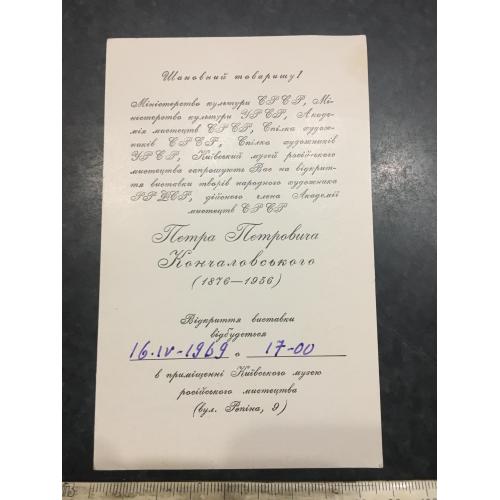 Шановний товаришу!
Міністерство культури СРСР, Мі-
ністерство культури УРСР, Акаде-
мія мистецтв СРСР, Спілка худож-
ників СРСР, Спілка художників
УРСР, Київський музей російського
мистецтва запрошують Вас на відкрит-
тя виставки творів народного художника
РРФСР, дійсного члена Академії
мистецтв СРСР
Петра Петровича
Кончаловського
(1876—1956)
Відкриття виставки
відбудеться
16.IV-1969 о 17-00
в приміщенні Київського музею
російського мистецтва
(вул. Рєпіна, 9)